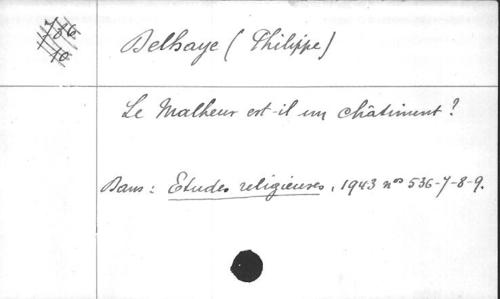 Delhaye (Philippe)
Le Malheur est-il un châtiment ?
Dans : Etudes religieuses, 1943 nos 536-7-8-9.